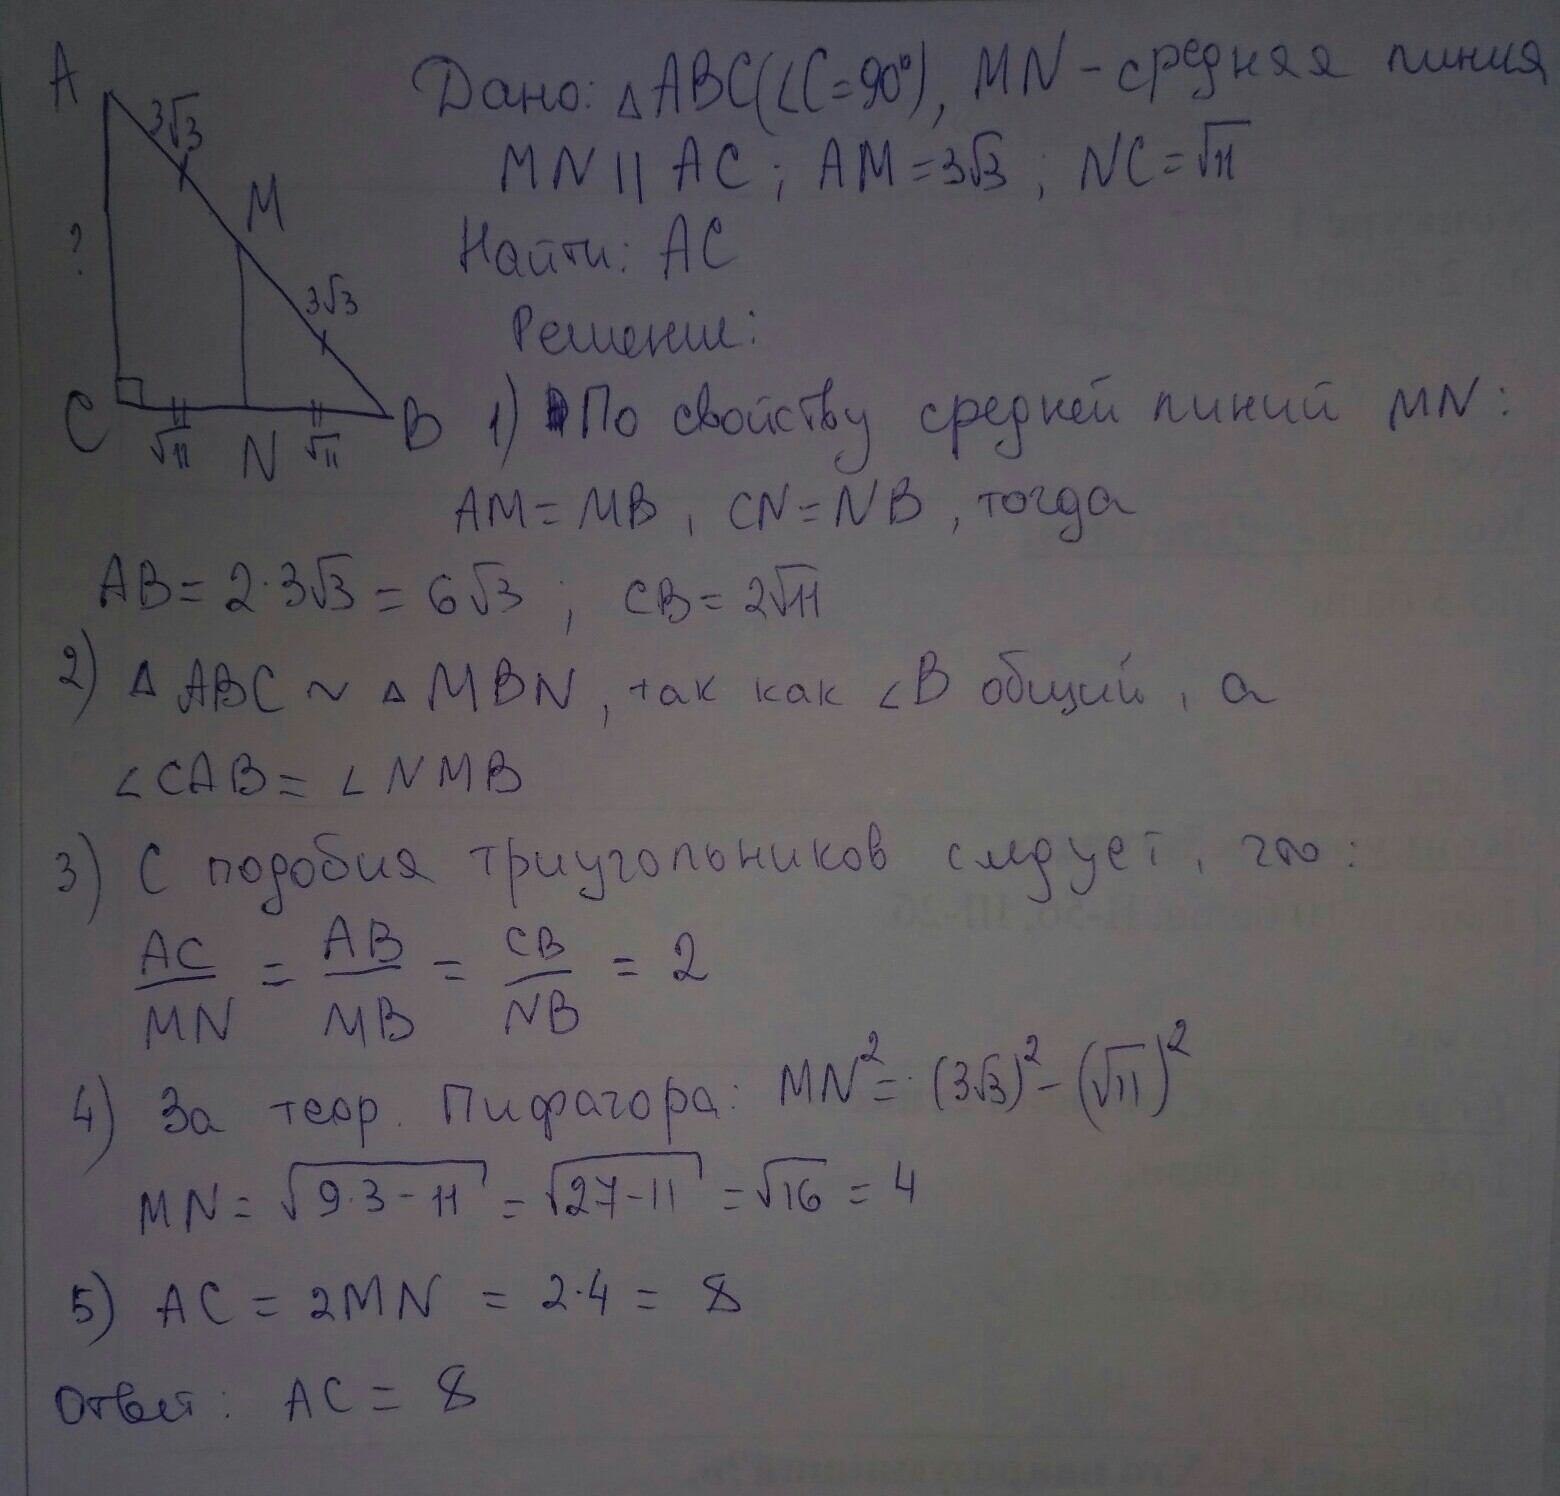 A
3√3
M
?
3√3
C
√11
N
√11
B
Дано: △ABC(∠C=90°), MN - средняя линия
MN || AC ; AM = 3√3 ; NC = √11
Найти: AC
Решение:
1) По свойству средней линий MN:
AM = MB , CN = NB , тогда
AB = 2·3√3 = 6√3 ; CB = 2√11
2) △ ABC ~ △ MBN , так как ∠B общий , а
∠CAB = ∠NMB
3) С подобия треугольников следует, что:
AC/MN = AB/MB = CB/NB = 2
4) За теор. Пифагора: MN² = (3√3)² - (√11)²
MN = √9·3-11 = √27-11 = √16 = 4
5) AC = 2MN = 2·4 = 8
Ответ: AC = 8